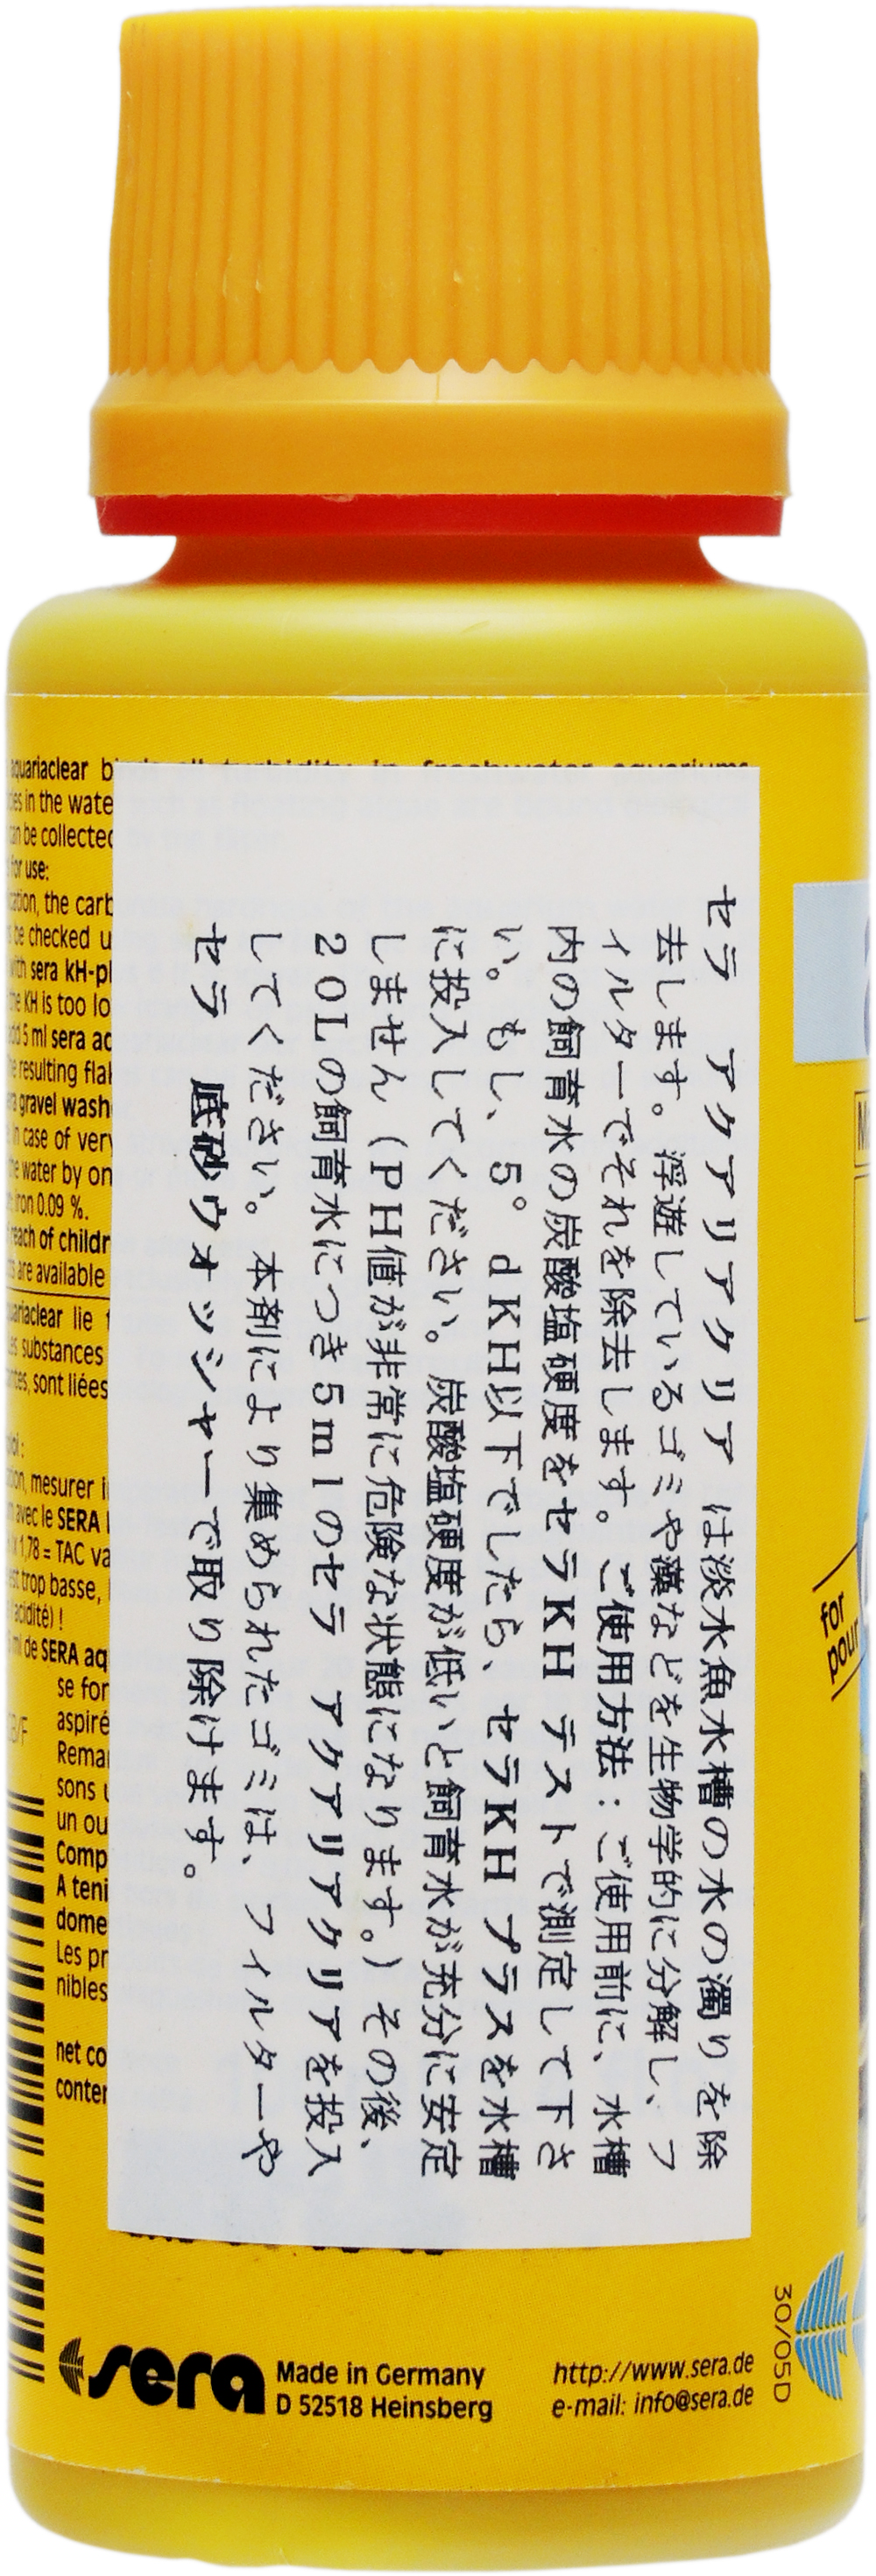 セラ　アクアリアクリア　は淡水魚水槽の水の濁りを除
去します。浮遊しているゴミや藻などを生物学的に分解し、フ
ィルターでそれを除去します。ご使用方法：ご使用前に、水槽
内の飼育水の炭酸塩硬度をセラKH テストで測定して下さ
い。もし、5°dKH以下でしたら、セラKH プラスを水槽
に投入してください。炭酸塩硬度が低いと飼育水が充分に安定
しません（PH値が非常に危険な状態になります。）その後、
20Lの飼育水につき5mlのセラ　アクアリアクリアを投入
してください。本剤により集められたゴミは、フィルターや
セラ　底砂ウォッシャーで取り除けます。
aquariaclear
in the
can be collected
for use:
the
be checked
with sera kH-
the KH is too
5 ml sera
resulting
gravel
in case of very
the water by
iron 0.09 %.
reach of
are available
lie
substances
sont liées
mesurer
avec le SERA
x 1,78 = TAC
trop basse,
acidité) !
ml de SERA
se
sons
un
A
Les
net
for
pour
30/05D
sera
Made in Germany
D 52518 Heinsberg
http://www.sera.de
e-mail: info@sera.de